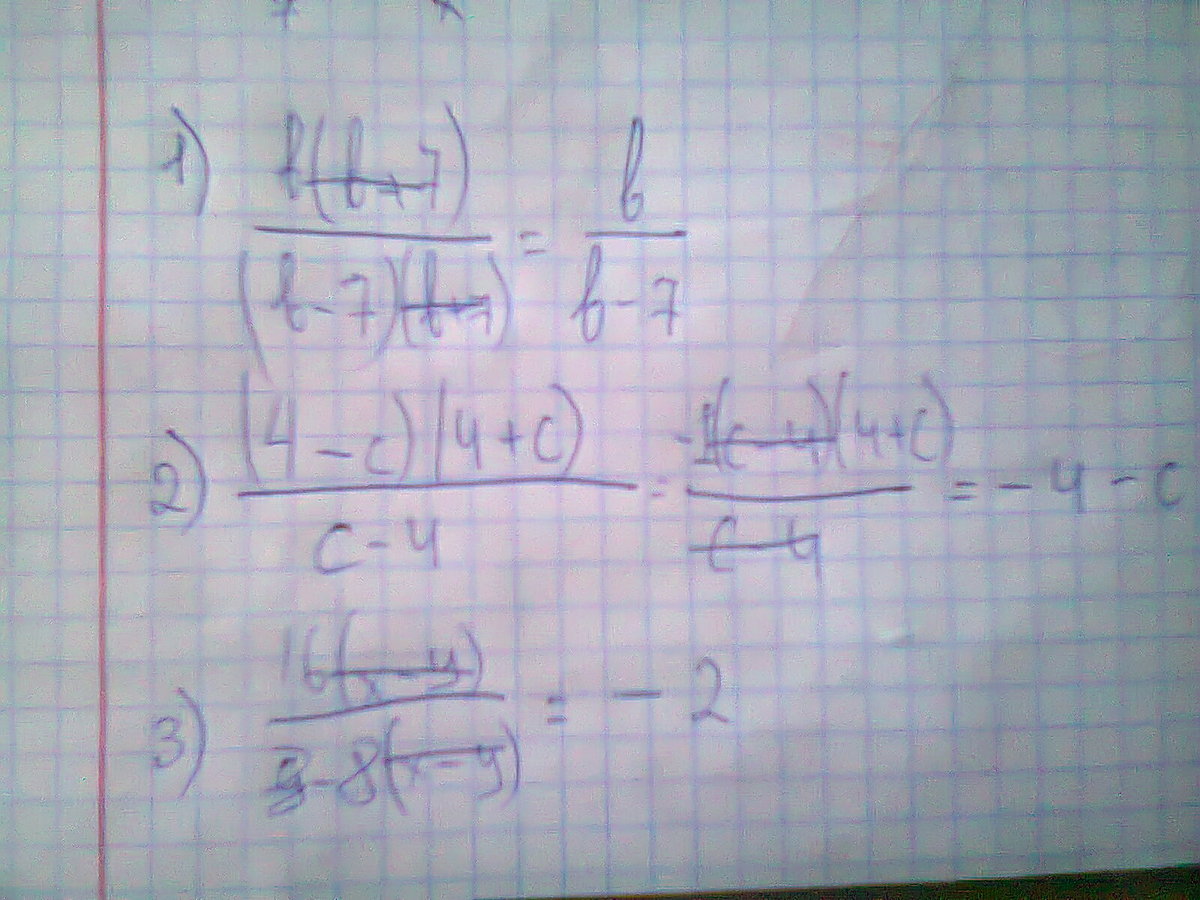 1) b(b+7) / (b-7)(b+7) = b / b-7
2) (4-c)(4+c) / c-4 = -1(c-4)(4+c) / c-4 = -4-c
3) 16(x-y) / -8(x-y) = -2